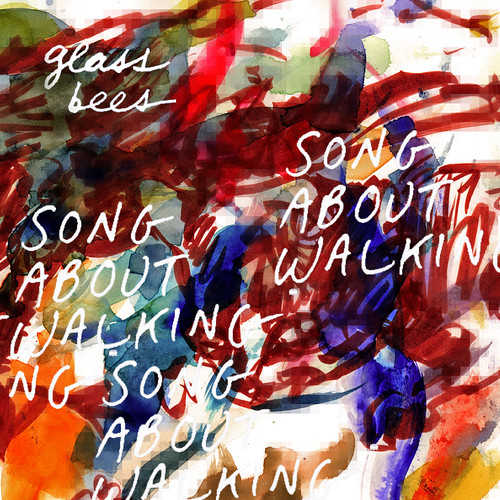 glass
bees
SONG
ABOUT
WALKING
SONG
ABOUT
WALKING
NG SONG
ABOUT
WALKING